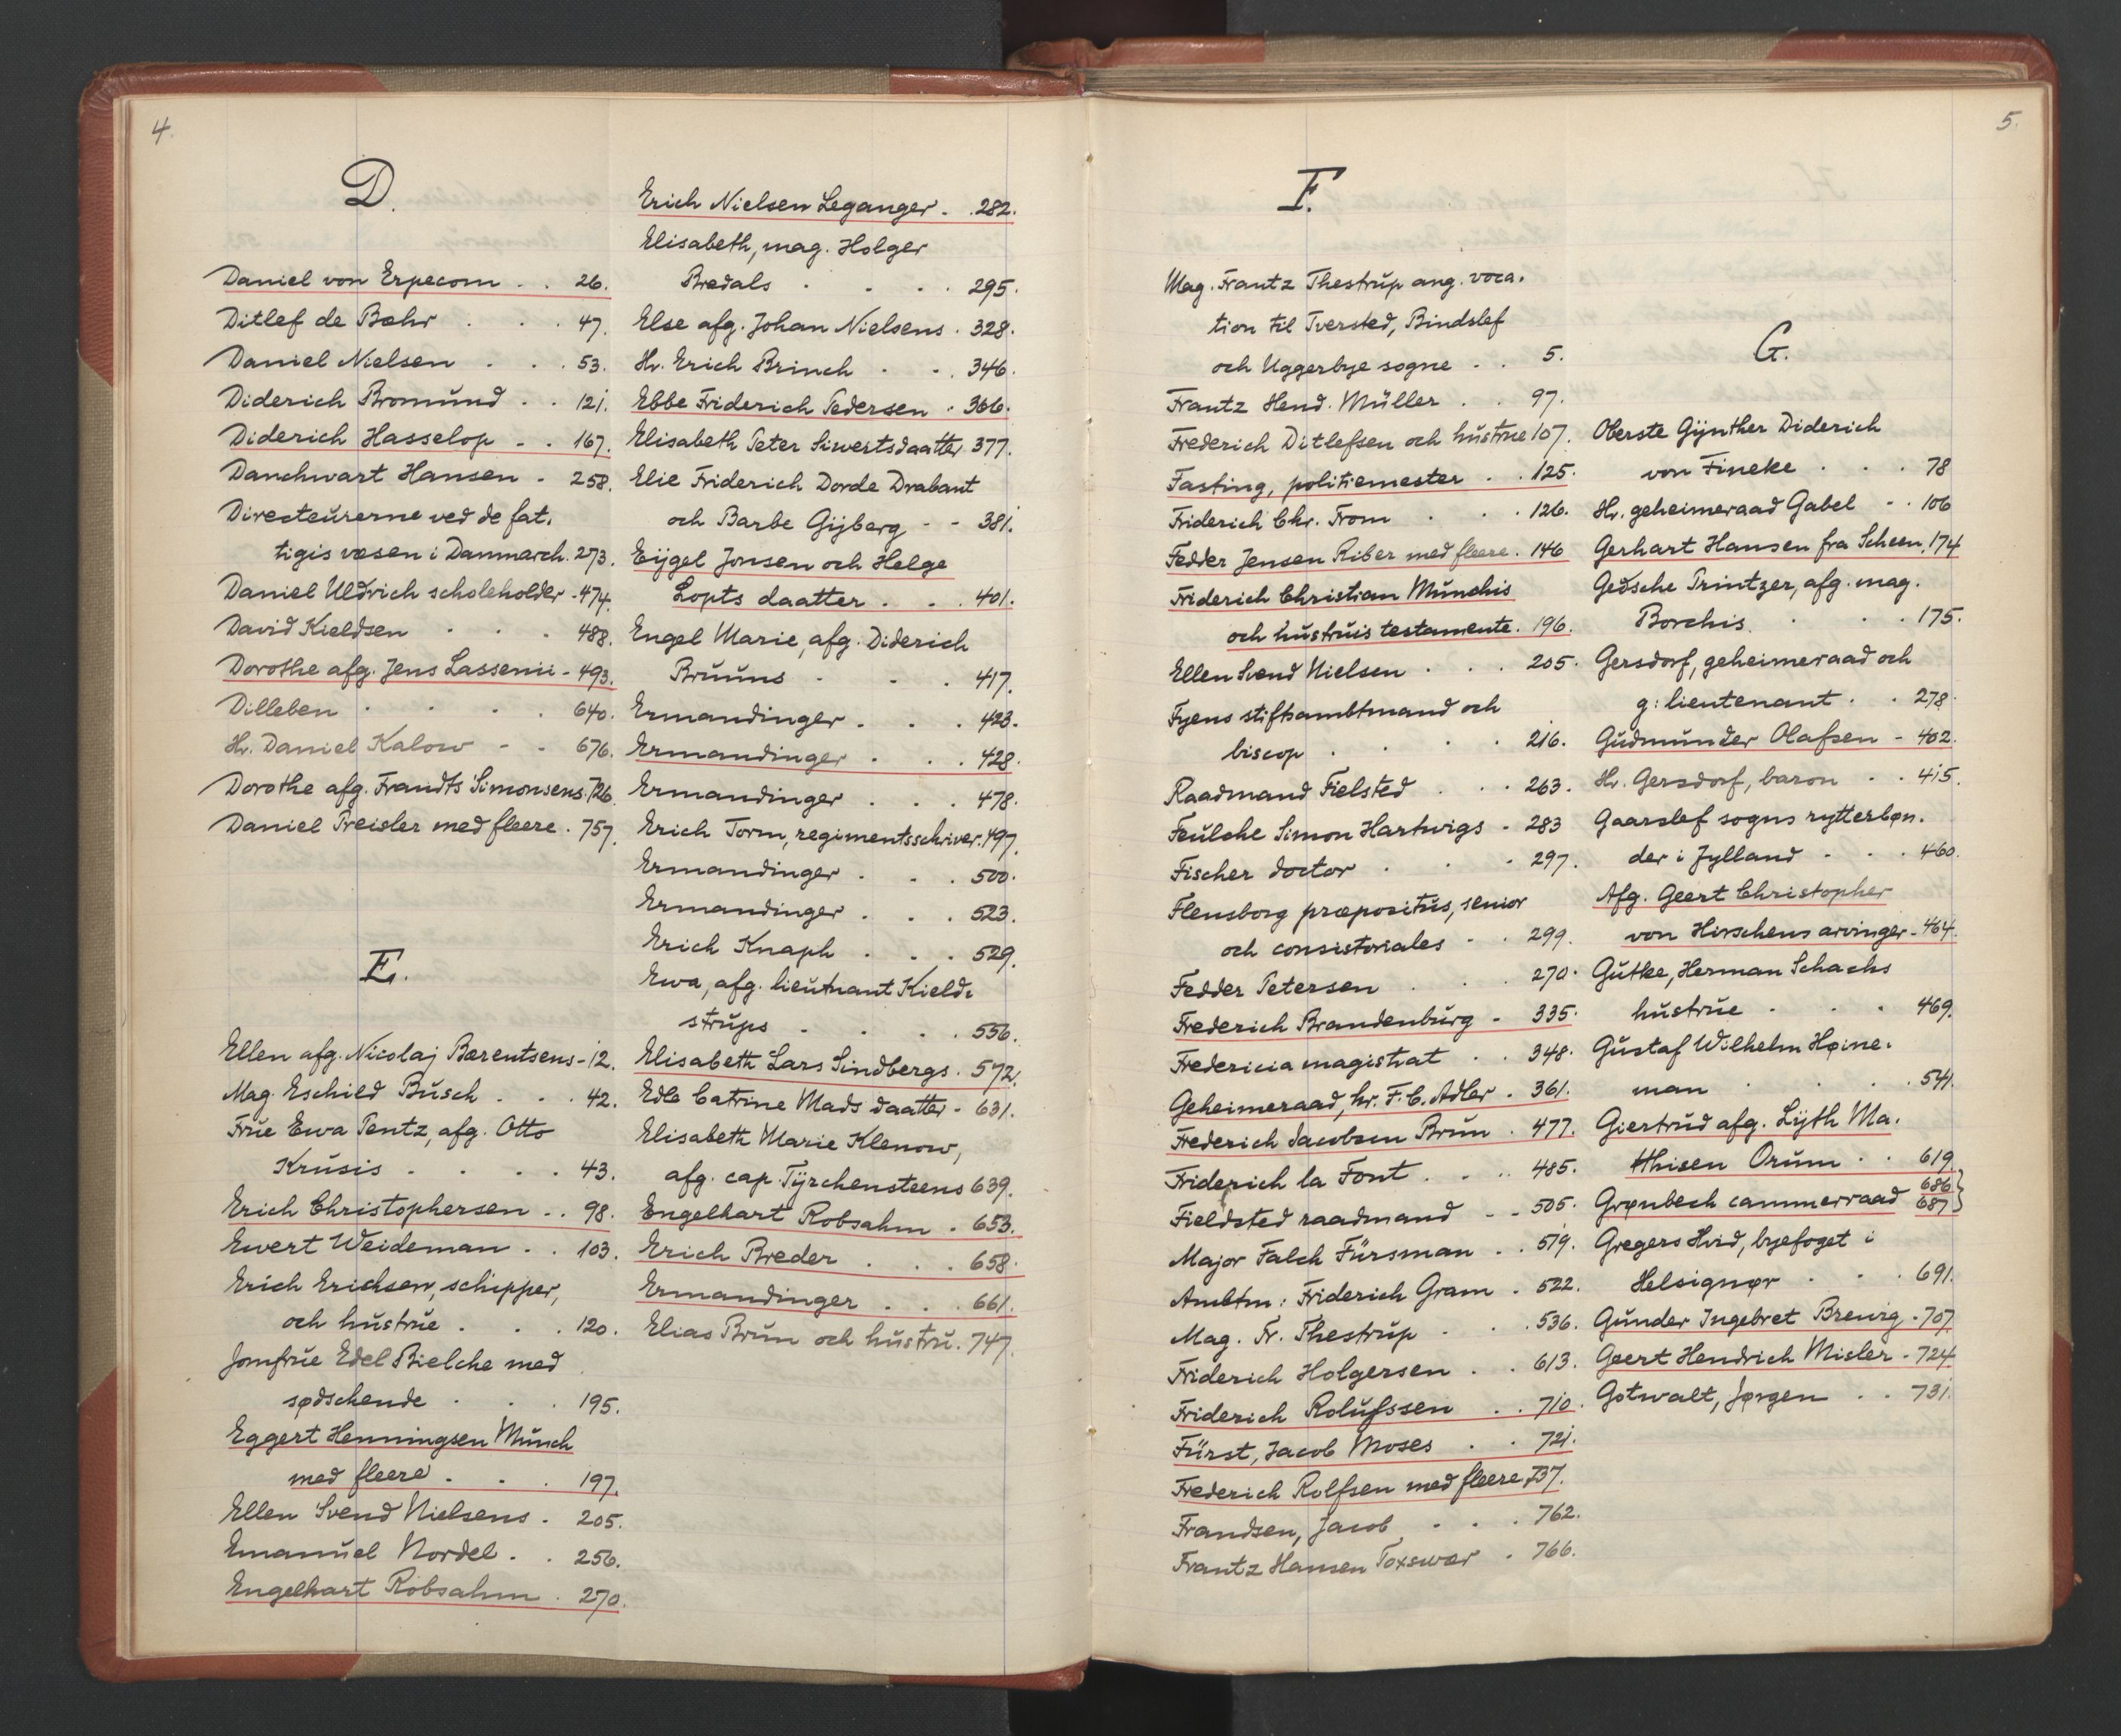 4.
D.
Daniel von Erpecom . . 26.
Ditlef de Bøhr . . . 47.
Daniel Nielsen . . . 53.
Diderich Bromund . . 121.
Diderich Hasselop . . 167.
Danchwart Hansen . 258.
Directeurerne ved de fat-
tigis væsen i Danmarch. 273.
Daniel Uldrich scholeholder . 474.
David Kieldsen . . . 488.
Dorothe afg. Jens Lassenii - 493.
Dilleben . . . . 640.
Hr. Daniel Kalow - . 676.
Dorothe afg. Frandts Simonsens. 726.
Daniel Preisler med fleere . 757.
E.
Ellen afg. Nicolaj Bærentsens - 12.
Mag. Eschild Busch . . . 42.
Frue Ewa Pentz, afg. Otto
Krusis . . . . 43.
Erich Christophersen . . 98.
Ewert Weideman . . 103.
Erich Erichsen, schipper,
och hustrue . . . 120.
Jomfrue Edel Bielche med
sødschende . . . 195.
Eggert Henningsen Munch
med fleere . . . 197.
Ellen Svend Nielsens . 205.
Emanuel Nordel . . 256.
Engelhart Robsahm . 270.
Erich Nielsen Leganger . . 282.
Elisabeth, mag. Holger
Bredals . . . . 295.
Else afg. Johan Nielsens . 328.
Hr. Erich Brinch . . . 346.
Ebbe Friderich Pedersen . 366.
Elisabeth Peter Siwertsdaatter 377.
Elie Friderich Dorde Drabant
och Barbe Gijberg - - 381.
Eijgel Jonsen och Helge
Lopts daatter . . . 401.
Engel Marie, afg. Diderich
Bruuns . . . 417.
Ermandinger . . . 423.
Ermandinger . . . 428.
Ermandinger . . . 478.
Erich Torm, regimentsschriver. 497.
Ermandinger . . . 500.
Ermandinger . . . 523.
Erich Knaph . . . 529.
Ewa, afg. lieutnant Kield-
strups . . . . 556.
Elisabeth Lars Lindbergs . 572.
Edle Catrine Mads daatter - 631.
Elisabeth Marie Klenow,
afg. cap. Tÿrchensteens 639.
Engelhart Robsahm . 653.
Erich Breder . . . 658.
Ermandinger . . . 661.
Elias Brun och hustru. 747.
5.
F.
Mag. Frantz Thestrup ang. voca-
tion til Tversted, Bindslef
och Uggerbye sogne . . 5.
Frantz Hend. Müller . . 97.
Frederich Ditlefsen och hustrue 107.
Fasting, politiemester . . 125.
Friderich Chr. From . . . 126.
Fedder Jensen Riber med fleere . 146
Friderich Christian Munchis
och hustruis testamente . 196.
Ellen Svend Nielsen . . . 205.
Fyens stiftsambtmand och
biscop . . . . 216.
Raadmand Fielsted . . . 263.
Feulche Simon Hartwigs . 283
Fischer doctor . . . 297.
Flensborg præpositus, senior
och consistoriales . . 299.
Fedder Petersen . . . 270.
Frederich Brandenburg - 335.
Fredericia magistrat . . 348.
Geheimeraad, hr. F. C. Adler . 361.
Frederich Jacobsen Brun . 477.
Friderich la Font . . . 485.
Fieldsted raadmand - - 505.
Major Falch Fürsman . . 519.
Ambtm: Friderich Gram . 522.
Mag. Fr. Thestrup . . . 536.
Friderich Holgersen . . 613.
Friderich Rolufssen . . 710.
Fürst, Jacob Moses . . 721.
Frederich Rolfsen med fleere 737.
Frandsen, Jacob . . . 762.
Frantz Hansen Toxswær . 766.
G.
Oberste Gÿnther Diderich
von Fineke . . . 78
Hr. geheimeraad Gabel . . 106
Gerhart Hansen fra Scheen, 174
Gedsche Printzer, afg. mag.
Borchis . . . 175.
Gersdorf, geheimeraad och
g: lieutenant . . 278.
Gudmunder Olafsen - 402.
Hr. Gersdorf, baron . . 415.
Gaarslef sogns rytterbøn-
der i Jylland . . . 460.
Afg. Geert Christopher
von Hirschens arvinger - 464.
Gutke, Herman Schachs
hustrue . . . 469.
Gustaf Wilhelm Høine-
man . . . . 541.
Giertrud afg. Lÿth Ma-
thisen Orum . . 619
Grønbech cammerraad 686 687}
Gregers Hvid, byefoget i
Helsignør . . . 691.
Gunder Ingebret Brewig . 707
Geert Hendrich Misler . 724
Gotwalt, Jørgen . . 731.